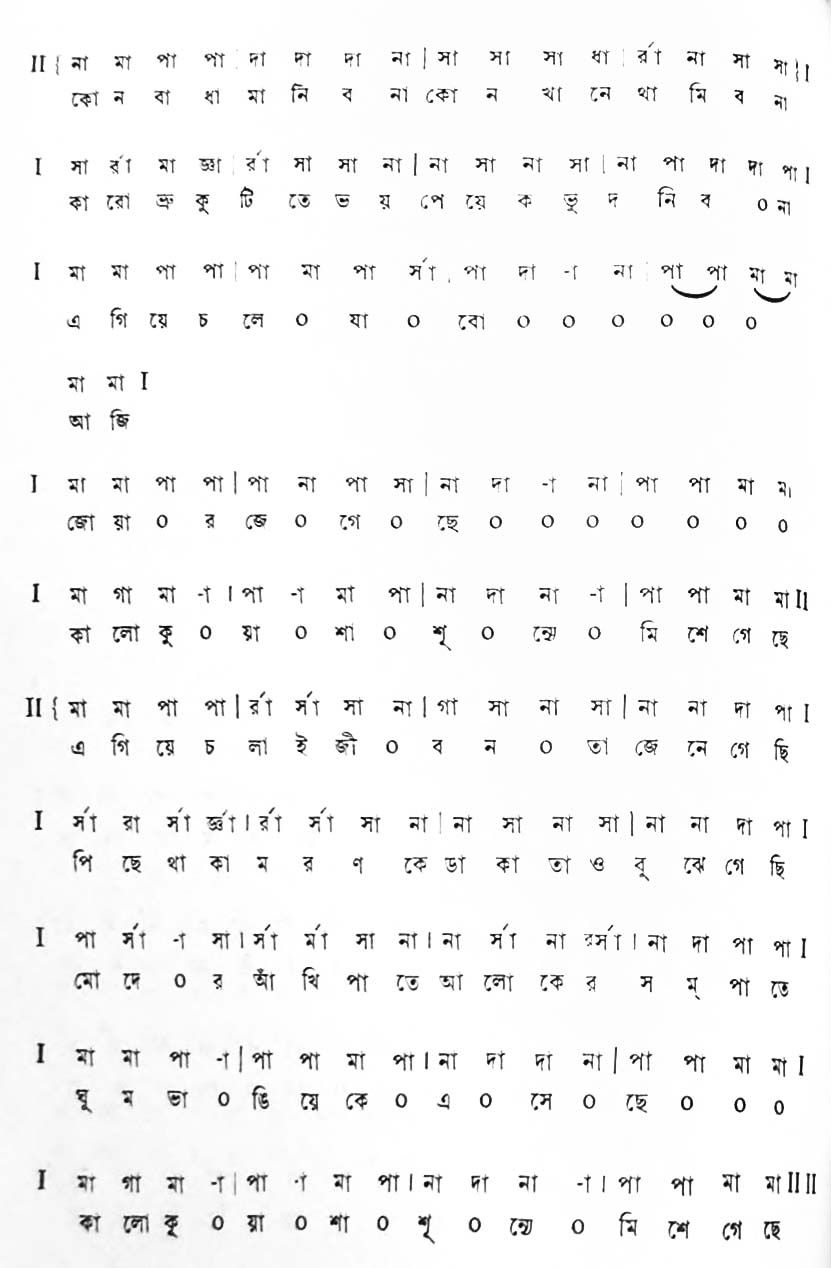 II { না মা পা পা | দা দা দা না | সা সা সা ধা | র্রা না সা সা } I
কো ন বা ধা মা নি ব না কো ন খা নে থা মি ব না
I সা র্রা মা জ্ঞা | র্রা সা সা না | না সা না সা | না পা দা দা পা I
কা রো ভ্রু কু টি তে ভ য় পে য়ে ক ভু দ নি ব ০ না
I মা মা পা পা | পা মা পা র্সা | পা দা -া না | পা পা মা মা
এ গি য়ে চ লে ০ যা ০ বো ০ ০ ০ ০ ০ ০
মা মা I
আ জি
I মা মা পা পা | পা না পা সা | না দা -া না | পা পা মা মা
জো য়া ০ র জে ০ গে ০ ছে ০ ০ ০ ০ ০ ০ ০
I মা গা মা -া । পা -া মা পা | না দা না -া | পা পা মা মা II
কা লো কু ০ য়া ০ শা ০ শূ ০ ন্যে ০ মি শে গে ছে
II { মা মা পা পা | র্রা র্সা সা না | গা সা না সা | না না দা পা I
এ গি য়ে চ লা ই জী ০ ব ন ০ তা জে নে গে ছি
I র্সা রা র্সা র্জ্ঞা । র্রা র্সা সা না | না সা না সা | না না দা পা I
পি ছে থা কা ম র ণ কে ডা কা তা ও বু ঝে গে ছি
I পা র্সা -া সা । র্সা র্মা সা না । না র্সা না রর্সা । না দা পা পা I
মো দে ০ র আঁ খি পা তে আ লো কে র স ম্ পা তে
I মা মা পা -া | পা পা মা পা । না দা দা না | পা পা মা মা I
ঘু ম ভা ০ ঙি য়ে কে ০ এ ০ সে ০ ছে ০ ০ ০
I মা গা মা -া | পা -া মা পা । না দা না -া । পা পা মা মা II II
কা লো কু ০ য়া ০ শা ০ শূ ০ ন্যে ০ মি শে গে ছে